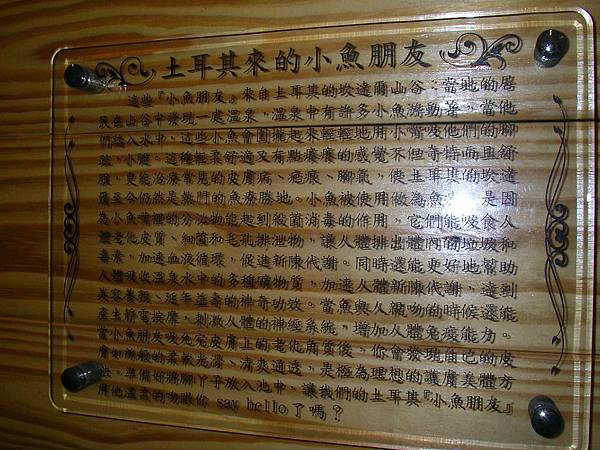 土耳其來的小魚朋友
這些『小魚朋友』來自土耳其的坎達爾山谷;當地的居
民在山谷中發現一處溫泉,溫泉中有許多小魚游動著,當他
們踏入水中,這些小魚會圍攏起來輕輕地用小嘴啵他們的腳
跡、小腿。這種輕柔舒適又有點癢癢的感覺不但奇特而且舒
服,更能治療常見的皮膚病、疤痕、腳氣,使土耳其的坎達
爾至今仍然是熱門的魚療勝地。小魚被使用做為魚 是因
為小魚嘴裡的分泌物能起到殺菌消毒的作用,它們能吸食人
體老化皮質、細菌和毛孔排泄物,讓人體排出體內的垃圾和
毒素,加速血液循環,促進新陳代謝。同時還能更好地幫助
人體吸收溫泉水中的多種礦物質,加速人體新陳代謝,達到
美容養顏、延年益壽的神奇功效。當魚與人親吻的時候還能
產生靜電按摩,刺激人體的神經系統,增加人體免疫能力。
當小魚朋友吸允完皮膚上的老化角質後,你會發現自己的皮
膚如旅般的柔軟光滑、清爽通透,是極為理想的護膚美體方
法。準備好將腳丫子放入池中,讓我們的土耳其『小魚朋友』
用他溫柔的吻跟你 say hello了嗎?